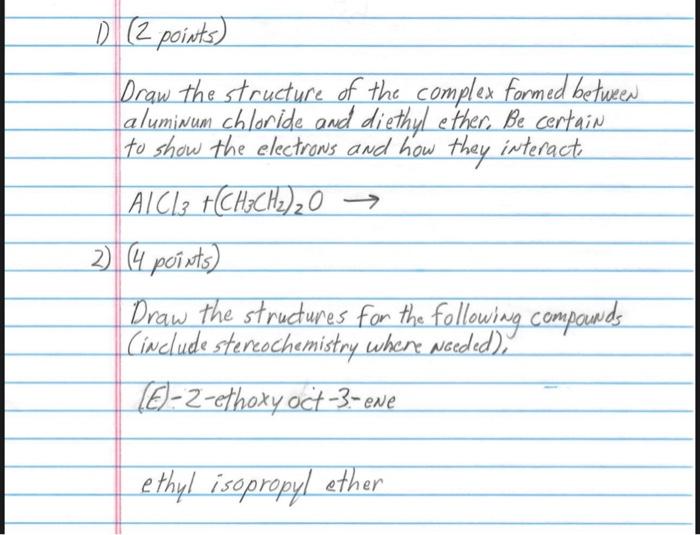 1) (2 points)
Draw the structure of the complex formed between
aluminum chloride and diethyl ether. Be certain
to show the electrons and how they interact.
AlCl3 + (CH3CH2)2O →
2) (4 points)
Draw the structures for the following compounds
(include stereochemistry where needed).
(E)-2-ethoxyoct-3-ene
ethyl isopropyl ether